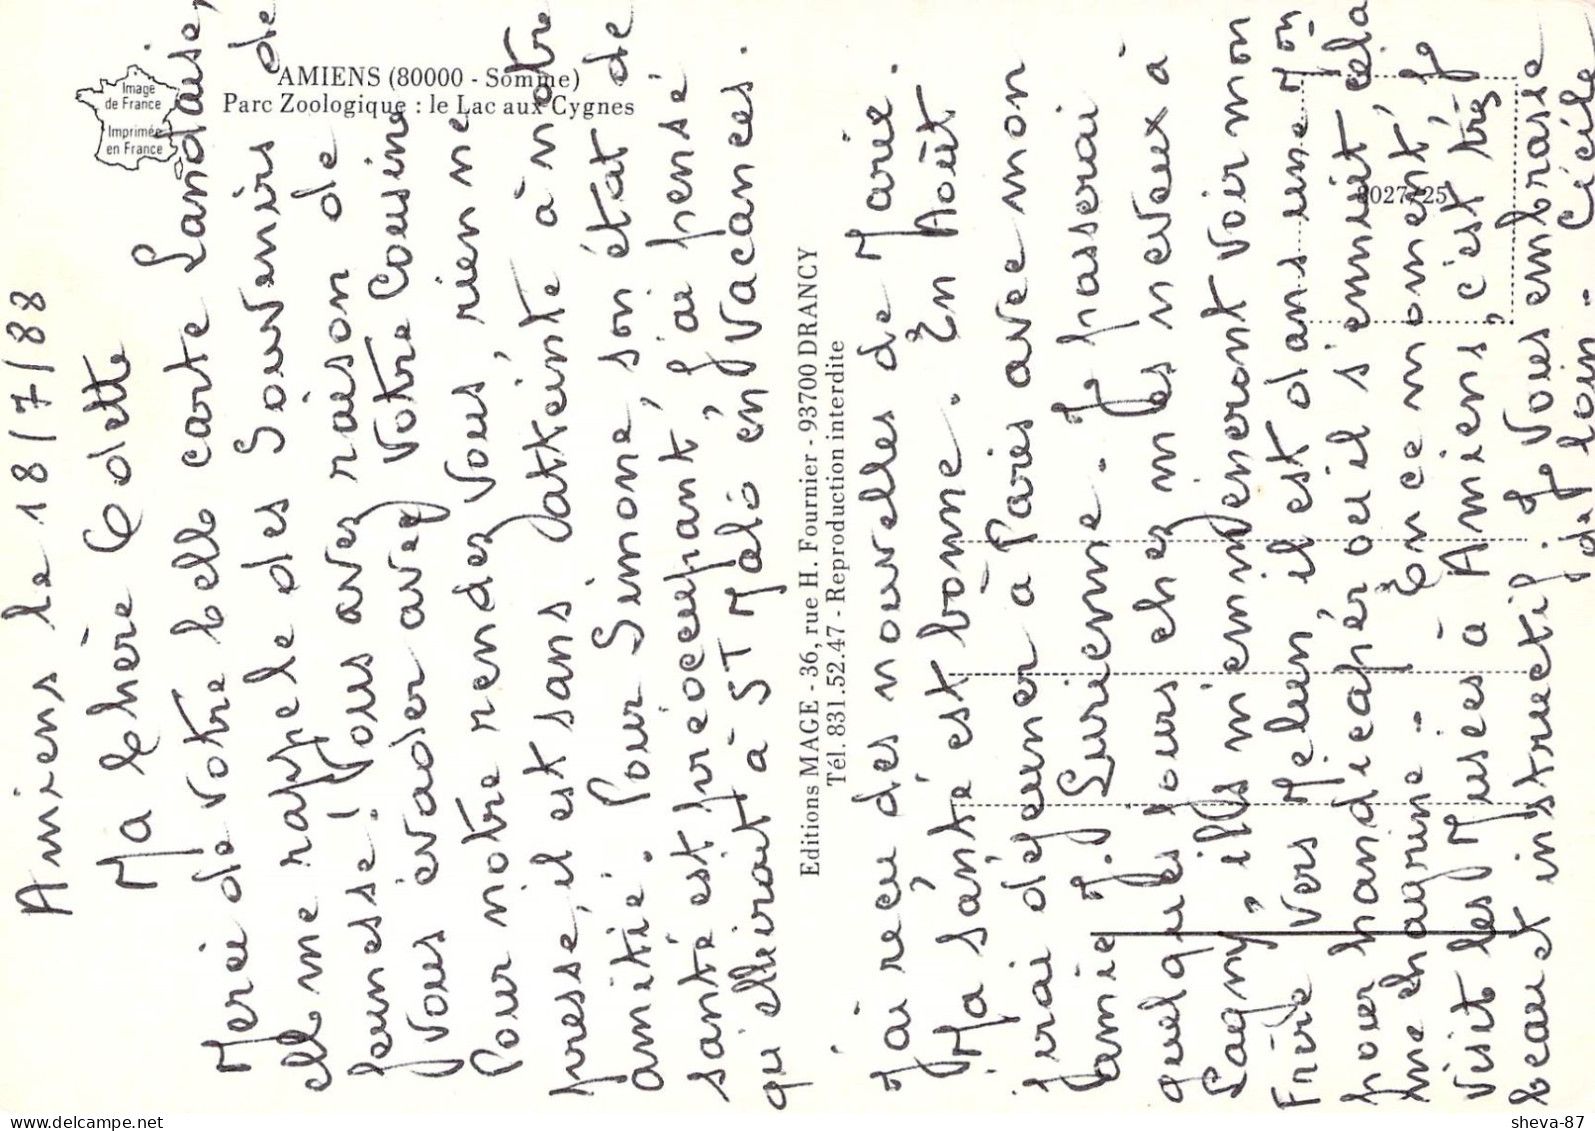 AMIENS (80000 - Somme)
Parc Zoologique : le Lac aux Cygnes
Image
de France
Imprimée
en France
8027/25
Editions MAGE - 36, rue H. Fournier - 93700 DRANCY
Tél. 831.52.47 - Reproduction interdite
Amiens le 18/7/88
Ma Chère Colette
Merci de votre belle carte Landaise,
elle me rappele des Souvenirs de
Jeunesse ! Vous avez raison de
Vous évader avec Votre Cousine
Pour notre rendez Vous, rien ne
presse, il est sans atteinte à notre
amitié. Pour Simone, son état de
santé est préoccupant, j'ai pensé
qu'elle irait à St Malo en Vacances.
J'ai reçu des nouvelles de Marie.
Ma santé est bonne. En Août
j'irai déjeuner à Paris avec mon
amie M. Lucienne. Je passerai
quelques jours chez mes neveux à
Lagny, ils m'emmèneront voir mon
Frère vers Melun, il est dans une Mon
pour handicapér ou il s'ennuit cela
me chagrine - En ce moment, je
visit les Musées à Amiens, c'est très
beau et instructif. Je Vous embrasse
de loin - Cécile
sheva-87